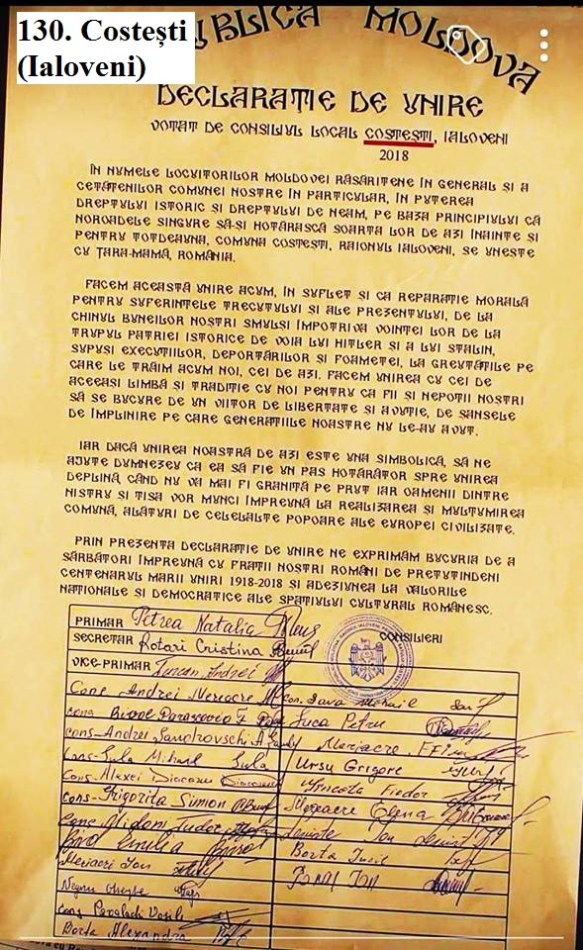 130. Costești
(Ialoveni)
MOLDOVA
DECLARAȚIE DE UNIRE
VOTAT DE CONSILIUL LOCAL COSTEȘTI, IALOVENI
2018
ÎN NUMELE LOCUITORILOR MOLDOVEI RĂSĂRITENE ÎN GENERAL ȘI A
CETĂȚENILOR COMUNEI NOSTRE ÎN PARTICULAR, ÎN PUTEREA
DREPTULUI ISTORIC ȘI DREPTULUI DE NEAM, PE BAZA PRINCIPIULUI CĂ
NOROADELE SINGURE SĂ-ȘI HOTĂRASCĂ SOARTA LOR DE AZI ÎNAINTE ȘI
PENTRU TOTDEAUNA, COMUNA COSTEȘTI, RAIONUL IALOVENI, SE UNEȘTE
CU ȚARA-MAMĂ, ROMÂNIA.
FACEM ACEASTĂ UNIRE ACUM, ÎN SUFLET ȘI CA REPARAȚIE MORALĂ
PENTRU SUFERINȚELE TRECUTULUI ȘI ALE PREZENTULUI, DE LA
CHINUL BUNEILOR NOȘTRI SMULȘI ÎMPOTRIVA VOINȚEI LOR DE LA
TRUPUL PATRIEI ISTORICE DE VOIA LUI HITLER ȘI A LUI STALIN,
SUPUȘI EXECUȚIILOR, DEPORTĂRILOR ȘI FOAMETEI, LA GREUTĂȚILE PE
CARE LE TRĂIM ACUM NOI, CEI DE AZI. FACEM UNIREA CU CEI DE
ACEEAȘI LIMBĂ ȘI TRADIȚIE CU NOI PENTRU CA FII ȘI NEPOȚII NOȘTRI
SĂ SE BUCURE DE UN VIITOR DE LIBERTATE ȘI AVUȚIE, DE ȘANSELE
DE ÎMPLINIRE PE CARE GENERAȚIILE NOASTRE NU LE-AU AVUT.
IAR DACĂ UNIREA NOASTRĂ DE AZI ESTE UNA SIMBOLICĂ, SĂ NE
AJUTE DUMNEZEU CA EA SĂ FIE UN PAS HOTĂRÂTOR SPRE UNIREA
DEPLINĂ, CÂND NU VA MAI FI GRANIȚĂ PE PRUT IAR OAMENII DINTRE
NISTRU ȘI TISA VOR MUNCI ÎMPREUNĂ LA REALIZAREA ȘI MULȚUMIREA
COMUNĂ, ALĂTURI DE CELELALTE POPOARE ALE EUROPEI CIVILIZATE.
PRIN PREZENTA DECLARAȚIE DE UNIRE NE EXPRIMĂM BUCURIA DE A
SĂRBĂTORI ÎMPREUNĂ CU FRAȚII NOȘTRI ROMÂNI DE PRETUTINDENI
CENTENARUL MARII UNIRI 1918-2018 ȘI ADEZIUNEA LA VALORILE
NAȚIONALE ȘI DEMOCRATICE ALE SPAȚIULUI CULTURAL ROMÂNESC.
PRIMAR Petrea Natalia
SECRETAR Rotari Cristina
CONSILIERI
VICE-PRIMAR Andrei
Cons Andrei
Mihail
Luca Petru
cons-Andrei
Cons-Gula Mihail Gula
Ursu Grigore
Cons. Alexei Diaconu
Fiodor
cons-Grigorița Simion
Elena
Tudor
Ion
Borta
Ion
Ion
Vasile
Borta Alexandra